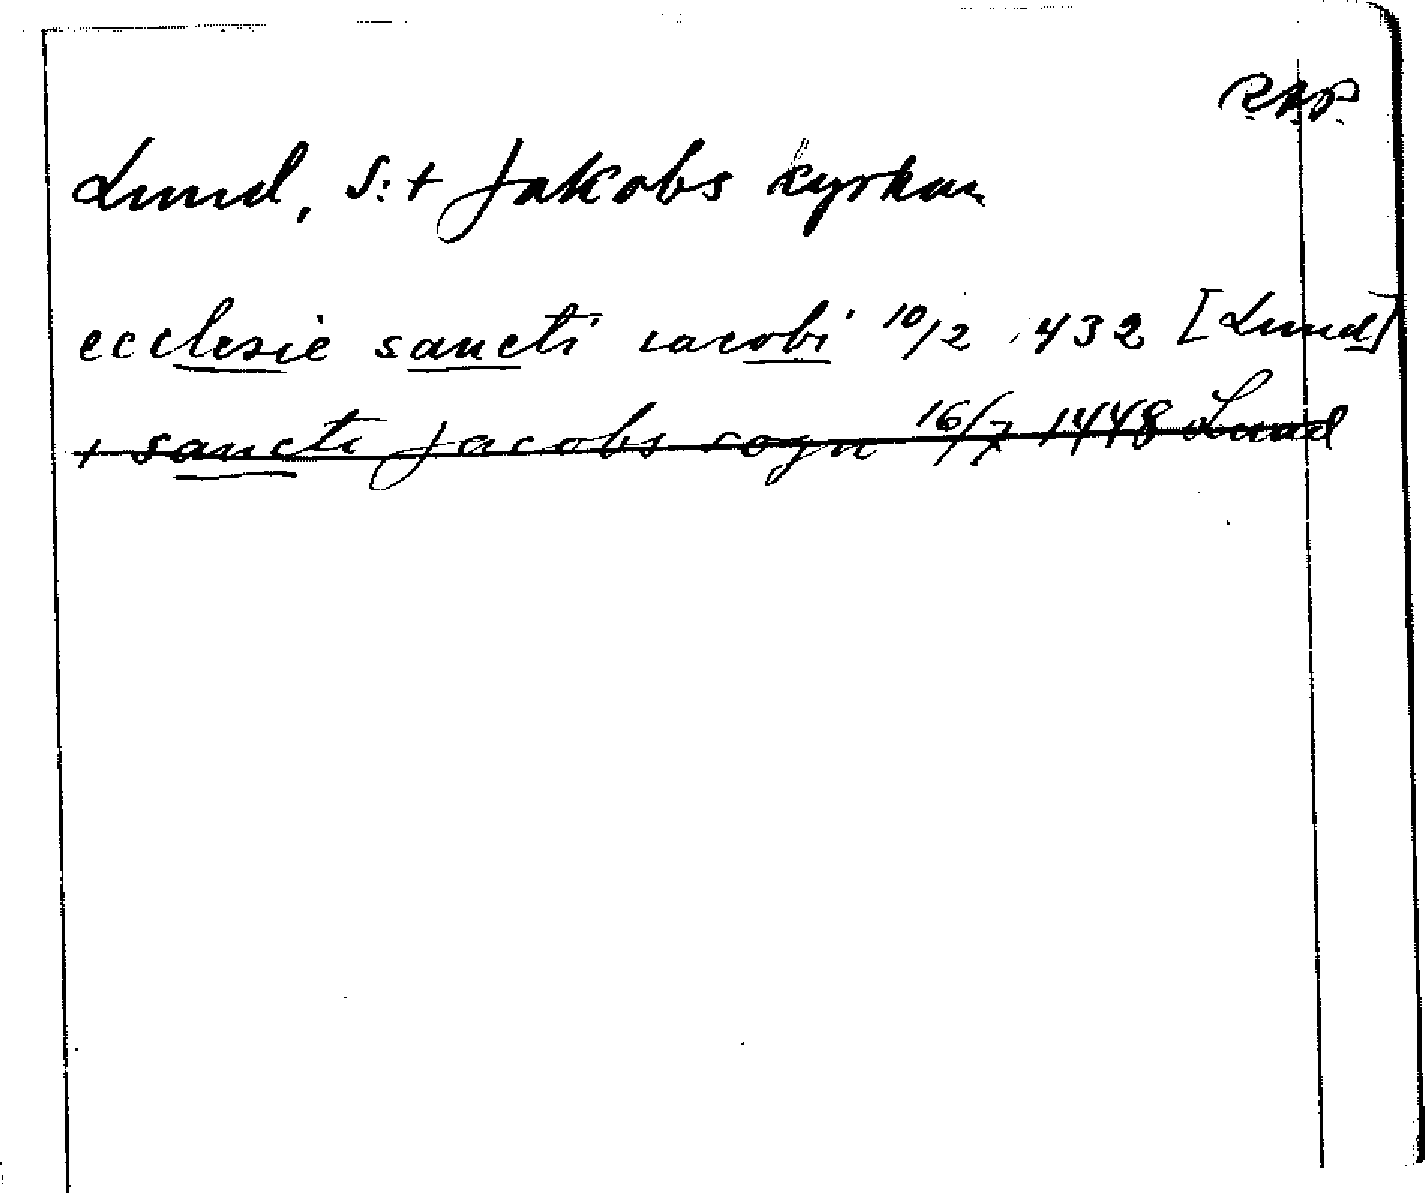 R.A.P.
Lund, S:t Jakobs kyrkan
ecclesie sancti iacobi 10/2 1432 [Lund]
+ sancti Jacobs sogn 16/7 1448 Lund